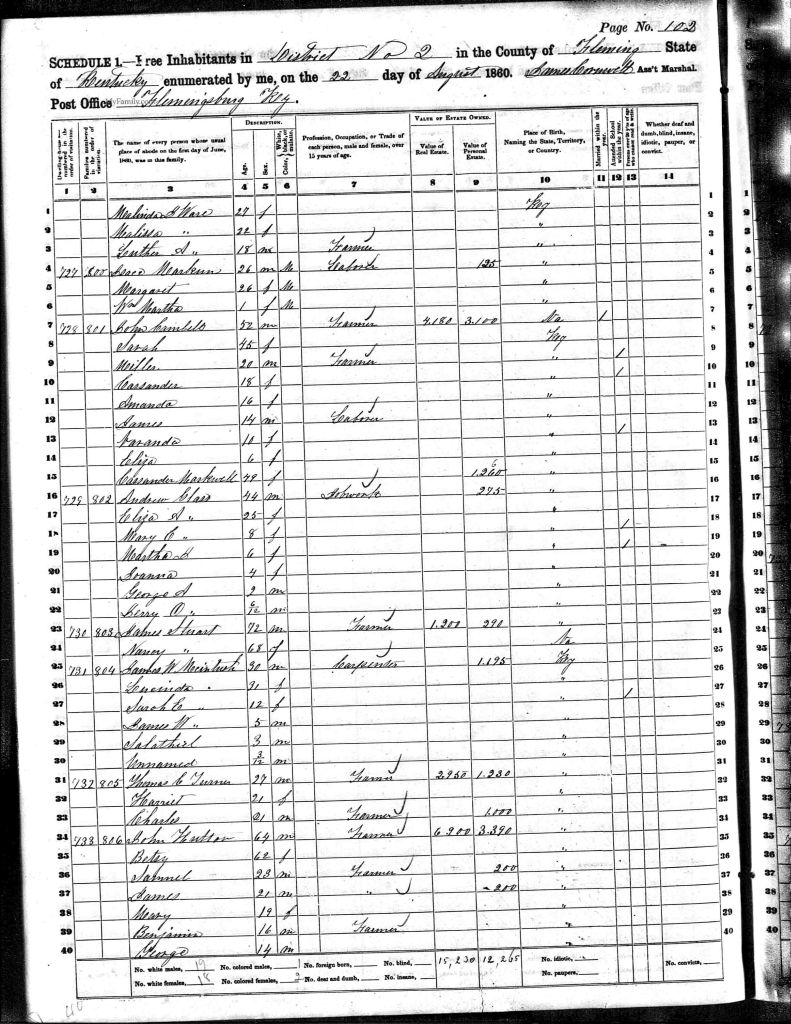 Page No. 102
SCHEDULE 1.—Free Inhabitants in District No 2 in the County of Fleming State
of Kentucky enumerated by me, on the 22 day of August 1860. James Ass't Marshal.
Post Office Flemingsburg Key.
MyFamily.
Dwelling-houses numbered in the order of visitation. Families numbered in the order of visitation. The name of every person whose usual place of abode on the first day of June, 1860, was in this family. DESCRIPTION. Age. Sex. Color, White, black, or mulatto. Profession, Occupation, or Trade of each person, male and female, over 15 years of age. VALUE OF ESTATE OWNED. Value of Real Estate. Value of Personal Estate. Place of Birth, Naming the State, Territory, or Country. Married within the year. Attended School within the year. Persons over 20 y'rs of age who cannot read & write. Whether deaf and dumb, blind, insane, idiotic, pauper, or convict.
1 2 3 4 5 6 7 8 9 10 11 12 13 14
1 Malinda Ware 27 f Key 1
2 Malissa " 22 f " 2
3 Luther A " 18 m Farmer " 3
4 727 800 26 m Mu Laborer 125 " 4
5 Margaret 26 f Mu " 5
6 Wm Martha 1 f Mu " 6
7 728 801 John 50 m Farmer 4.180 3.100 Va 1 7
8 Sarah 45 f Key 8
9 Miller 20 m Farmer " 1 9
10 Cassander 18 f " 1 10
11 Amanda 16 f " 11
12 James 14 m Laborer " 12
13 Varanda 10 f " 1 13
14 Eliza 6 f " 14
15 Cassander Markwell 49 f 1.260 " 15
16 729 802 Andrew Class 44 m Jobwork 275 " 16
17 Eliza A " 25 f " 17
18 Mary C " 8 f " 1 18
19 Martha 6 f " 1 19
20 Joanna 4 f " 20
21 George A 2 m " 21
22 Perry O " 6/12 m " 22
23 730 803 James Stuart 72 m Farmer 1.200 290 " 23
24 Nancy " 68 f Va 24
25 731 804 James W McIntosh 30 m Carpenter 1.195 Key 25
26 Lucinda " 31 f " 26
27 Sarah C " 12 f " 1 27
28 James W " 5 m " 28
29 Salathiel 3 m " 29
30 Unnamed 3/12 m " 30
31 732 805 Thomas C Turner 27 m Farmer 2950 1.230 " 31
32 Harriet 21 f " 32
33 Charles 21 m Farmer 1.000 " 33
34 733 806 John Hutton 64 m Farmer 6 900 3.390 " 34
35 Betsy 62 f " 35
36 Samuel 23 m Farmer 200 " 36
37 James 21 m " 200 " 37
38 Mary 19 f " 38
39 Benjamin 16 m Farmer " 39
40 George 14 m " 40
No. white males, 19 No. colored males, 1 No. foreign born, No. blind, 15,230 12,265 No. idiotic, No. convicts,
No. white females, 18 No. colored females, 2 No. deaf and dumb, No. insane, No. paupers,